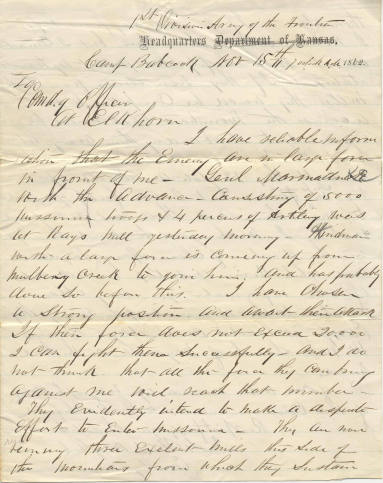 1st Division Army of the Frontier
Headquarters Department of Kansas,
Camp Babcock Nov 15th 1862.
To
Comdg Officer
at Elkhorn
I have reliable inform
ation that the Enemy are in large force
in front of me - Genl Marmaduke
with the Advance - Consisting of 5000
Missouri troops & 4 pieces of Artilery was
at Rays Mill yesterday morning Hindman
with a large force is comeing up from
Mulberry Creek to join him, and has probably
done so before this. I have chosen
a strong position and await their attack
If their force does not exceed 20,000
I can fight them Successfully - and I do
not think that all the force they can bring
against me will reach that number -
They Evidently intend to make a desperate
Effort to Enter Missouri - They are now
runing three Exelent Mills this Side of
the Mountains from which they Sustain